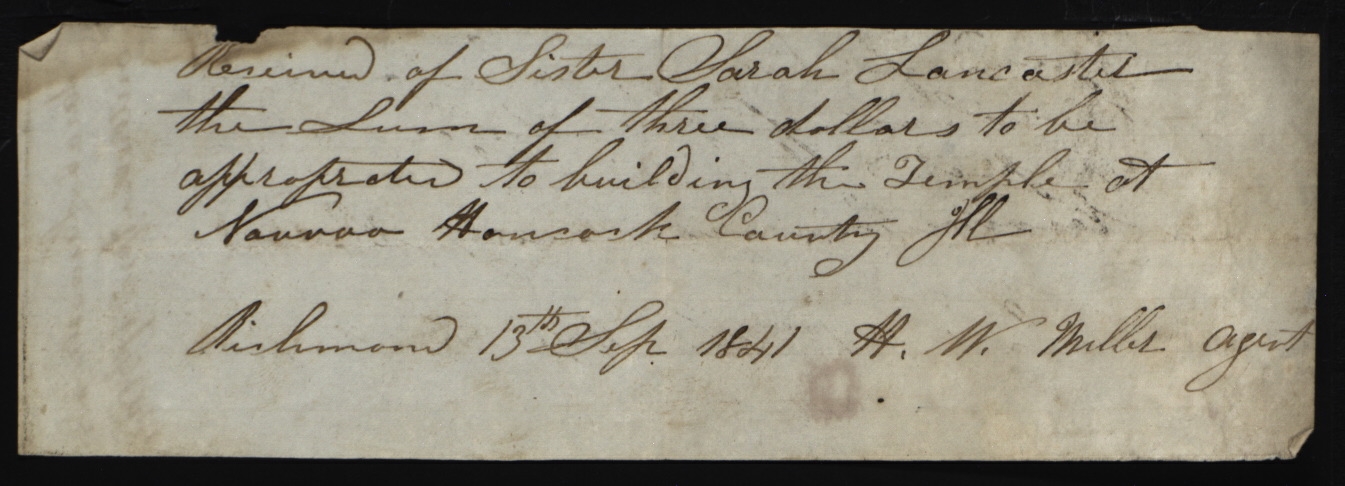 Received of Sister Sarah Lancaster
the Sum of three dollars to be
appropreted to building the Temple at
Nauvoo Hancock County Ill
Richmond 13th Sep. 1841 H. W. Miller agent